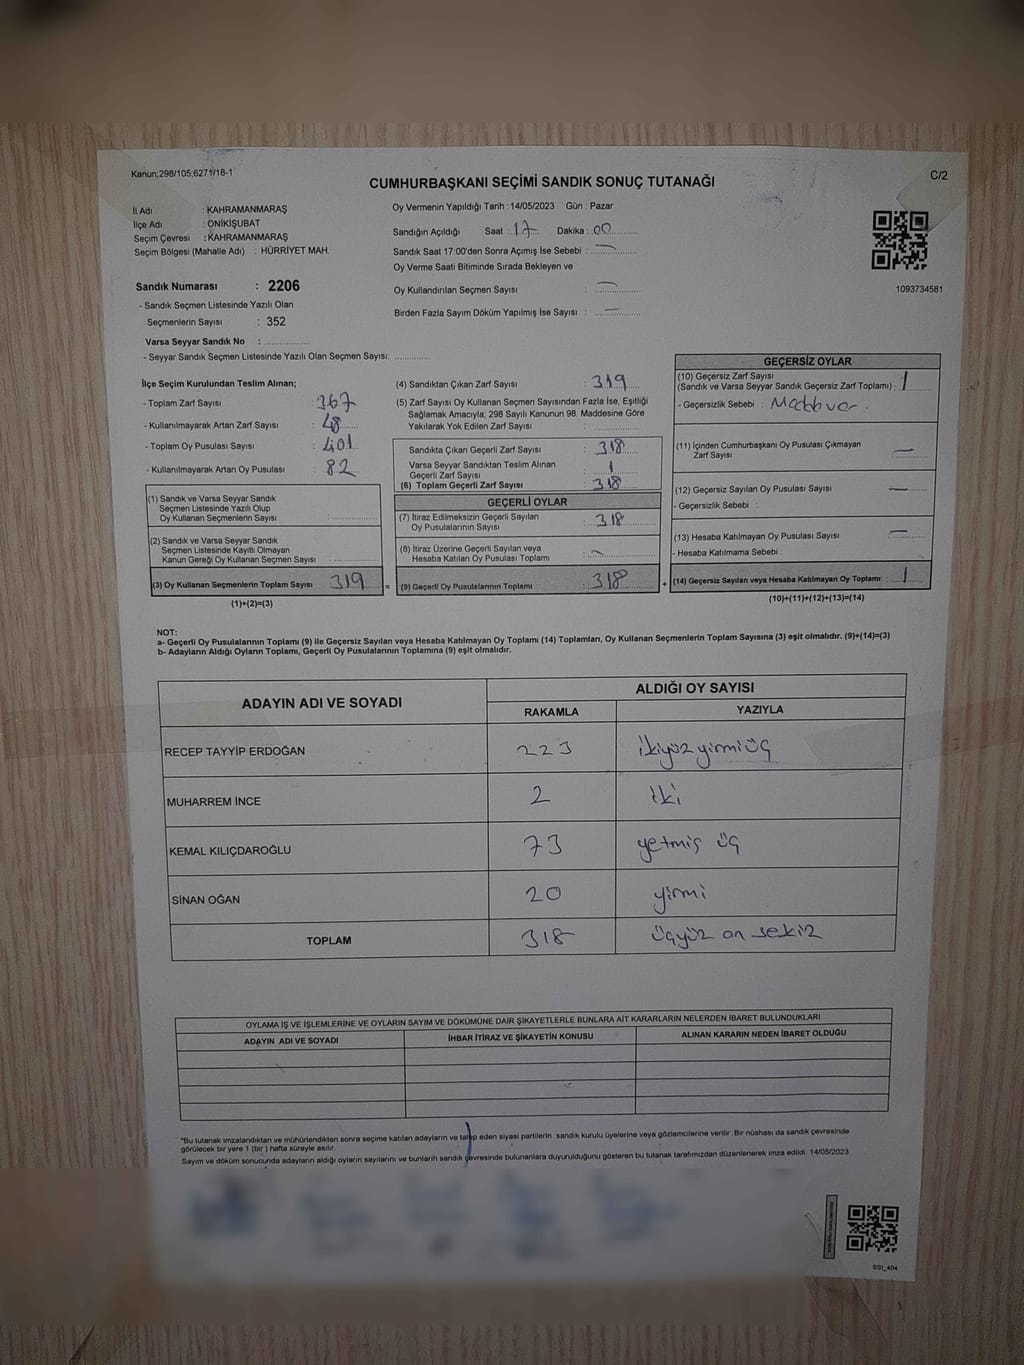 Kanun;298/105;6271/18-1
C/2
CUMHURBAŞKANI SEÇİMİ SANDIK SONUÇ TUTANAĞI
İl Adı : KAHRAMANMARAŞ
İlçe Adı : ONİKİŞUBAT
Seçim Çevresi : KAHRAMANMARAŞ
Seçim Bölgesi (Mahalle Adı) : HÜRRİYET MAH.
Sandık Numarası : 2206
- Sandık Seçmen Listesinde Yazılı Olan
Seçmenlerin Sayısı : 352
Varsa Seyyar Sandık No :
- Seyyar Sandık Seçmen Listesinde Yazılı Olan Seçmen Sayısı:
Oy Vermenin Yapıldığı Tarih : 14/05/2023 Gün : Pazar
Sandığın Açıldığı Saat : 17 Dakika : 00
Sandık Saat 17:00'den Sonra Açımış İse Sebebi : —
Oy Verme Saati Bitiminde Sırada Bekleyen ve
Oy Kullandırılan Seçmen Sayısı : —
Birden Fazla Sayım Döküm Yapılmış İse Sayısı : —
1093734581
İlçe Seçim Kurulundan Teslim Alınan;
- Toplam Zarf Sayısı : 367
- Kullanılmayarak Artan Zarf Sayısı : 48
- Toplam Oy Pusulası Sayısı : 401
- Kullanılmayarak Artan Oy Pusulası : 82
(1) Sandık ve Varsa Seyyar Sandık
Seçmen Listesinde Yazılı Olup
Oy Kullanan Seçmenlerin Sayısı :
(2) Sandık ve Varsa Seyyar Sandık
Seçmen Listesinde Kayıtlı Olmayan
Kanun Gereği Oy Kullanan Seçmen Sayısı :
(3) Oy Kullanan Seçmenlerin Toplam Sayısı 319
(1)+(2)=(3)
(4) Sandıktan Çıkan Zarf Sayısı : 319
(5) Zarf Sayısı Oy Kullanan Seçmen Sayısından Fazla İse, Eşitliği
Sağlamak Amacıyla; 298 Sayılı Kanunun 98. Maddesine Göre
Yakılarak Yok Edilen Zarf Sayısı :
Sandıkta Çıkan Geçerli Zarf Sayısı : 318
Varsa Seyyar Sandıktan Teslim Alınan
Geçerli Zarf Sayısı : 1
(6) Toplam Geçerli Zarf Sayısı : 318
GEÇERLİ OYLAR
(7) İtiraz Edilmeksizin Geçerli Sayılan
Oy Pusulalarının Sayısı : 318
(8) İtiraz Üzerine Geçerli Sayılan veya
Hesaba Katılan Oy Pusulası Toplamı : —
= (9) Geçerli Oy Pusulalarının Toplamı : 318
GEÇERSİZ OYLAR
(10) Geçersiz Zarf Sayısı
(Sandık ve Varsa Seyyar Sandık Geçersiz Zarf Toplamı) : 1
- Geçersizlik Sebebi :
(11) İçinden Cumhurbaşkanı Oy Pusulası Çıkmayan
Zarf Sayısı : —
(12) Geçersiz Sayılan Oy Pusulası Sayısı : —
- Geçersizlik Sebebi :
(13) Hesaba Katılmayan Oy Pusulası Sayısı : —
- Hesaba Katılmama Sebebi :
+ (14) Geçersiz Sayılan veya Hesaba Katılmayan Oy Toplamı : 1
(10)+(11)+(12)+(13)=(14)
NOT:
a- Geçerli Oy Pusulalarının Toplamı (9) ile Geçersiz Sayılan veya Hesaba Katılmayan Oy Toplamı (14) Toplamları, Oy Kullanan Seçmenlerin Toplam Sayısına (3) eşit olmalıdır. (9)+(14)=(3)
b- Adayların Aldığı Oyların Toplamı, Geçerli Oy Pusulalarının Toplamına (9) eşit olmalıdır.
ADAYIN ADI VE SOYADI
ALDIĞI OY SAYISI
RAKAMLA YAZIYLA
RECEP TAYYİP ERDOĞAN 223 ikiyüz yirmi üç
MUHARREM İNCE 2 iki
KEMAL KILIÇDAROĞLU 73 yetmiş üç
SİNAN OĞAN 20 yirmi
TOPLAM 318 üçyüz on sekiz
OYLAMA İŞ VE İŞLEMLERİNE VE OYLARIN SAYIM VE DÖKÜMÜNE DAİR ŞİKAYETLERLE BUNLARA AİT KARARLARIN NELERDEN İBARET BULUNDUKLARI
ADAYIN ADI VE SOYADI İHBAR İTİRAZ VE ŞİKAYETİN KONUSU ALINAN KARARIN NEDEN İBARET OLDUĞU
*Bu tutanak imzalandıktan ve mühürlendikten sonra seçime katılan adayların ve talep eden siyasi partilerin sandık kurulu üyelerine veya gözlemcilerine verilir. Bir nüshası da sandık çevresinde
görülecek bir yere 1 (bir) hafta süreyle asılır.
Sayım ve döküm sonucunda adayların aldığı oyların sayılarını ve bunların sandık çevresinde bulunanlara duyurulduğunu gösteren bu tutanak tarafımızdan düzenlenerek imza edildi. 14/05/2023